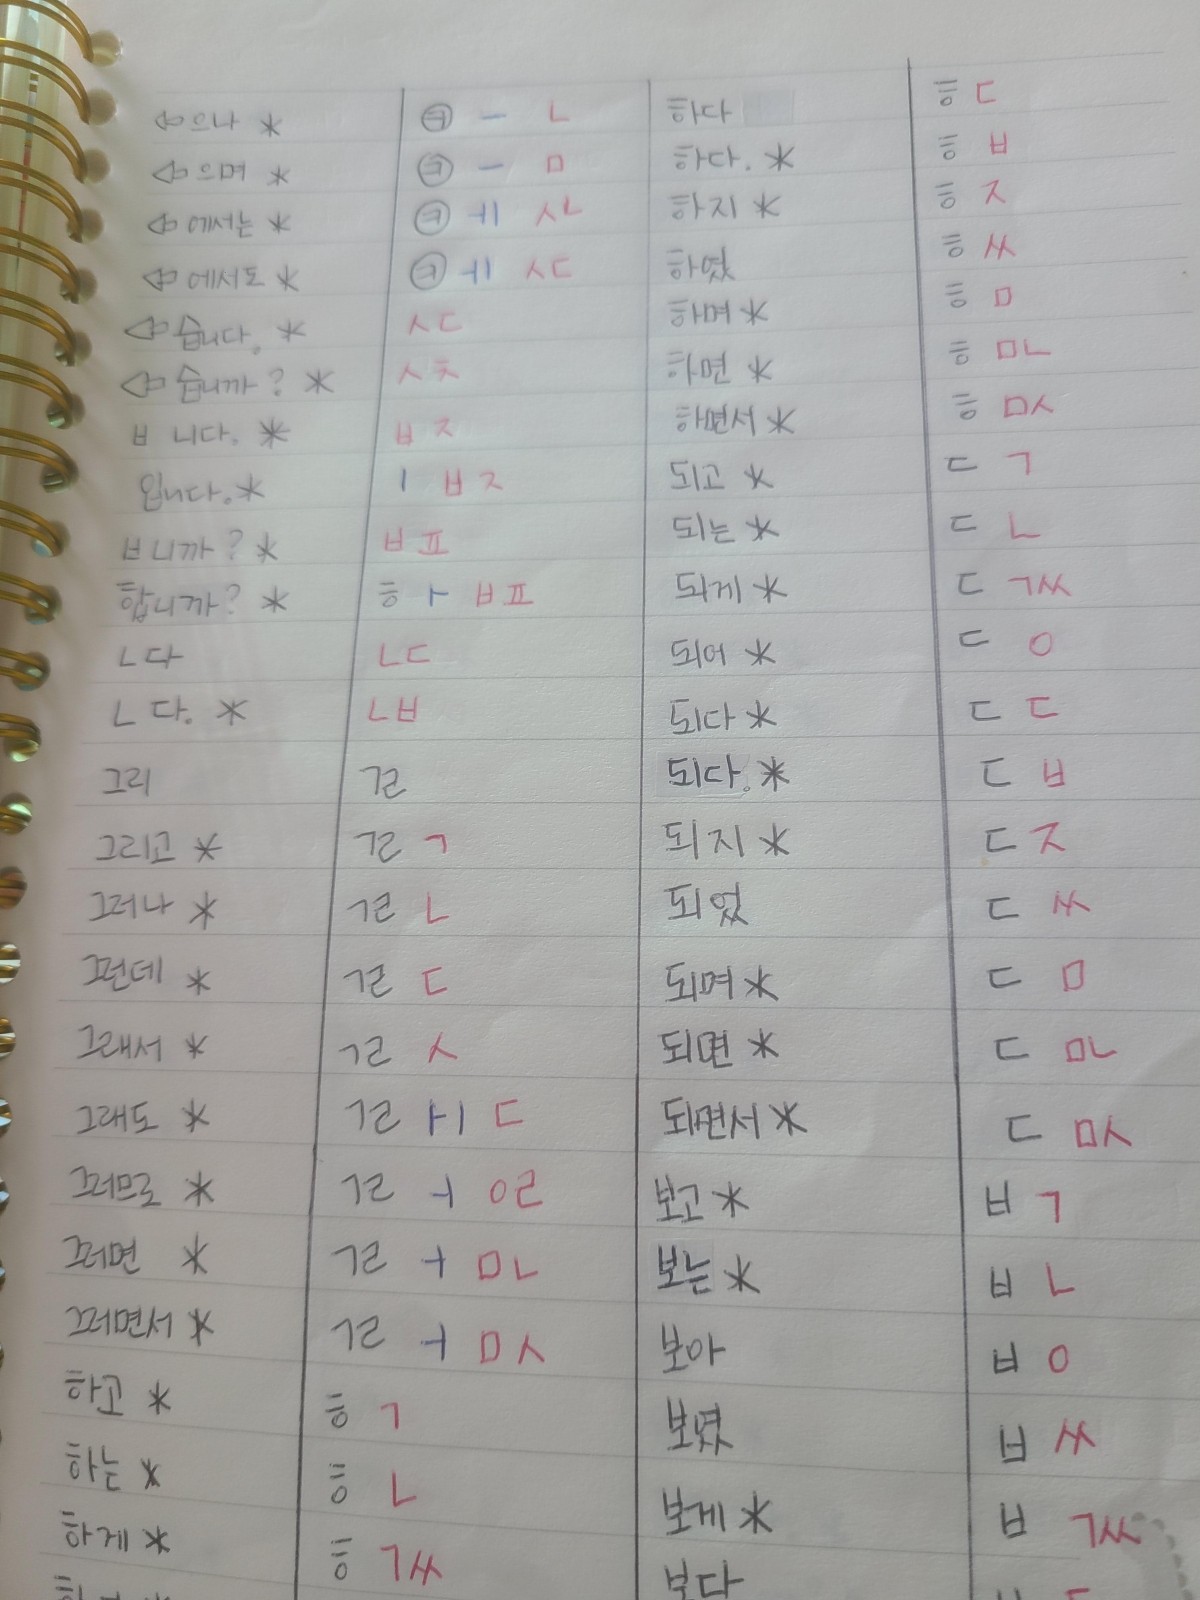 ⇦으나 * ㉣ ㅡ ㄴ
⇦으며 * ㅡ ㅁ
⇦에서는 * ㅔ ㅅㄴ
⇦에서도 * ㅔ ㅅㄷ
⇦습니다. * ㅅㄷ
⇦습니까? * ㅅㅊ
ㅂ 니다. * ㅂㅈ
입니다. * ㅣ ㅂㅈ
ㅂ니까? * ㅂㅍ
합니까? * ㅎ ㅏ ㅂㅍ
ㄴ다 ㄴㄷ
ㄴ 다. * ㄴㅂ
그리 ㄱㄹ
그리고 * ㄱㄹ ㄱ
그러나 * ㄱㄹ ㄴ
그런데 * ㄱㄹ ㄷ
그래서 * ㄱㄹ ㅅ
그래도 * ㄱㄹ ㅐ ㄷ
그러므로 * ㄱㄹ ㅓ ㅇㄹ
그러면 * ㄱㄹ ㅓ ㅁㄴ
그러면서 * ㄱㄹ ㅓ ㅁㅅ
하고 * ㅎ ㄱ
하는 * ㅎ ㄴ
하게 * ㅎ ㄱㅆ
하다 ㅎ ㄷ
하다. * ㅎ ㅂ
하지 * ㅎ ㅈ
하였 ㅎ ㅆ
하며 * ㅎ ㅁ
하면 * ㅎ ㅁㄴ
하면서 * ㅎ ㅁㅅ
되고 * ㄷ ㄱ
되는 * ㄷ ㄴ
되게 * ㄷ ㄱㅆ
되어 * ㄷ ㅇ
되다 * ㄷ ㄷ
되다. * ㄷ ㅂ
되지 * ㄷ ㅈ
되었 ㄷ ㅆ
되며 * ㄷ ㅁ
되면 * ㄷ ㅁㄴ
되면서 * ㄷ ㅁㅅ
보고 * ㅂ ㄱ
보는 * ㅂ ㄴ
보아 ㅂ ㅇ
보였 ㅂ ㅆ
보게 * ㅂ ㄱㅆ
보다